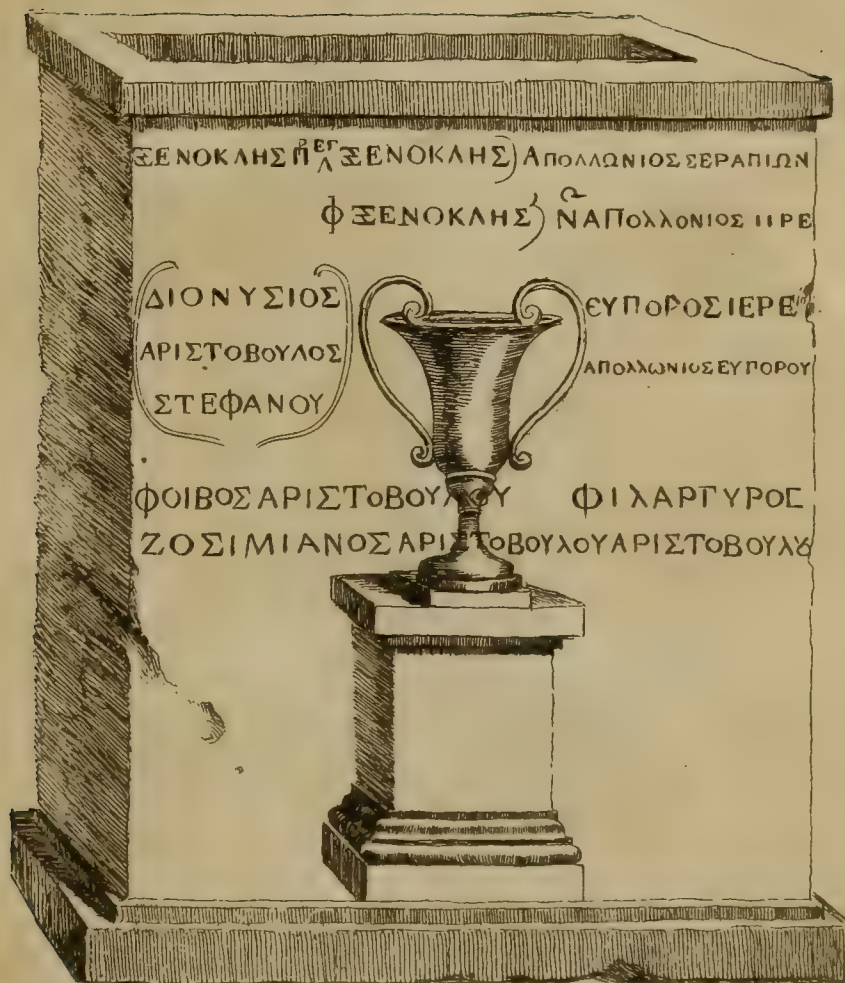 ΞΕΝΟΚΛΗΣ ΞΕΝΟΚΛΗΣ) ΑΠΟΛΛΩΝΙΟΣ ΣΕΡΑΠΙΩΝ
Φ ΞΕΝΟΚΛΗΣ) ΑΠΟΛΛΟΝΙΟΣ ΙΙΡΕ
ΔΙΟΝΥΣΙΟΣ
ΑΡΙΣΤΟΒΟΥΛΟΣ
ΣΤΕΦΑΝΟΥ
ΕΥΠΟΡΟΣ ΙΕΡΕ
ΑΠΟΛΛΩΝΙΟΣ ΕΥΠΟΡΟΥ
ΦΟΙΒΟΣ ΑΡΙΣΤΟΒΟΥΛΟΥ ΦΙΛΑΡΓΥΡΟΣ
ΖΟΣΙΜΙΑΝΟΣ ΑΡΙΣΤΟΒΟΥΛΟΥ ΑΡΙΣΤΟΒΟΥΛȣ